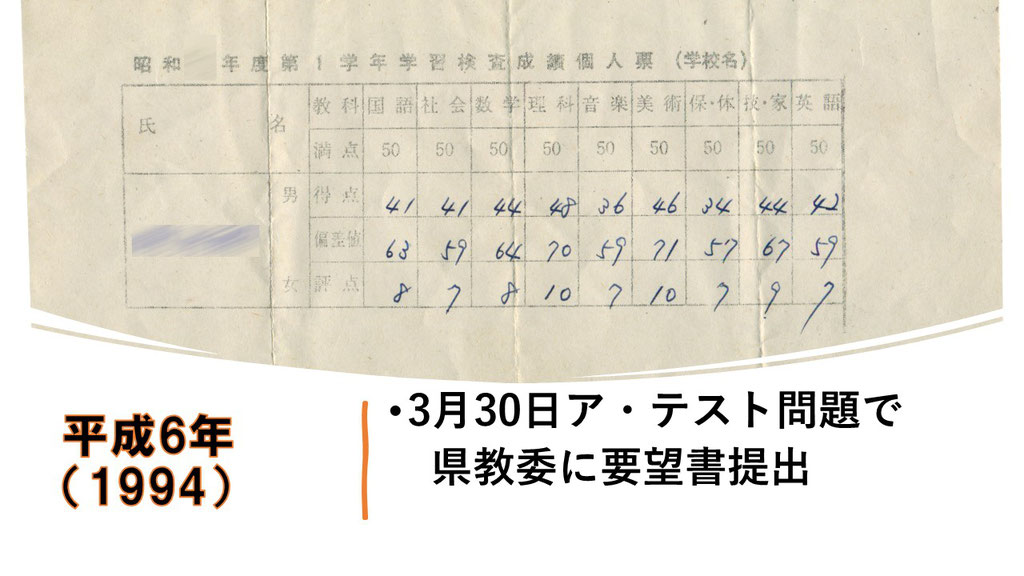 昭和 年度第1学年学習検査成績個人票(学校名)
氏 名 教科 国語 社会 数学 理科 音楽 美術 保・体 技・家 英語
満点 50 50 50 50 50 50 50 50 50
男 得点 41 41 44 48 36 46 34 44 42
偏差値 63 59 64 70 59 71 57 67 59
女 評点 8 7 8 10 7 10 7 9 7
平成6年
(1994)
•3月30日ア・テスト問題で
県教委に要望書提出